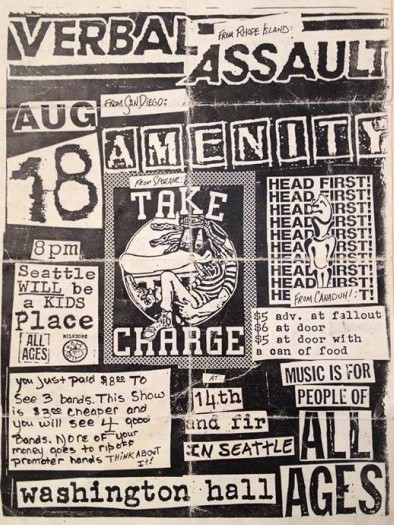 VERBAL
FROM RHODE ISLAND:
ASSAULT
AUG
18
FROM SAN DIEGO:
AMENITY
FROM SPOKANE
TAKE
CHARGE
HEAD FIRST!
HEAD FIRST!
HEAD FIRST!
HEAD FIRST!
HEAD FIRST!
HEAD FIRST!
HEAD FIRST!
HEAD FIRST!
FROM CANADUH!:
8pm
Seattle
WILL be
a KIDS
Place
ALL
AGES
$5 adv. at fallout
$6 at door
$5 at door with
a can of food
you just paid $8.00 TO
see 3 bands. This Show
is $3.00 cheaper and
you will see 4 good
bands. None of your
money goes to rip off
promoter hands THINK ABOUT
It!
AT
14th
and fir
IN SEATTLE
MUSIC IS FOR
PEOPLE OF
ALL
AGES
washington hall